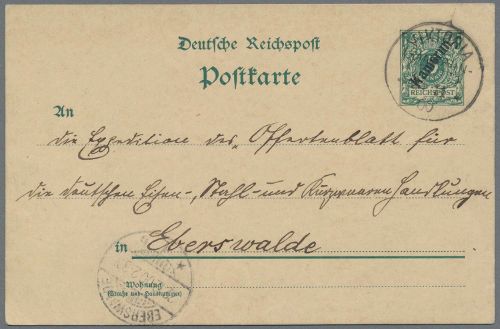 Deutsche Reichspost
Postkarte
VIKTORIA
Kamerun
REICHSPOST
An
die Expedition des „Offertenblatt für
die deutschen Eisen-, Stahl- und Kurzwaaren Handlungen
in Eberswalde
Wohnung
(Straße und Hausnummer)
EBERSWALDE